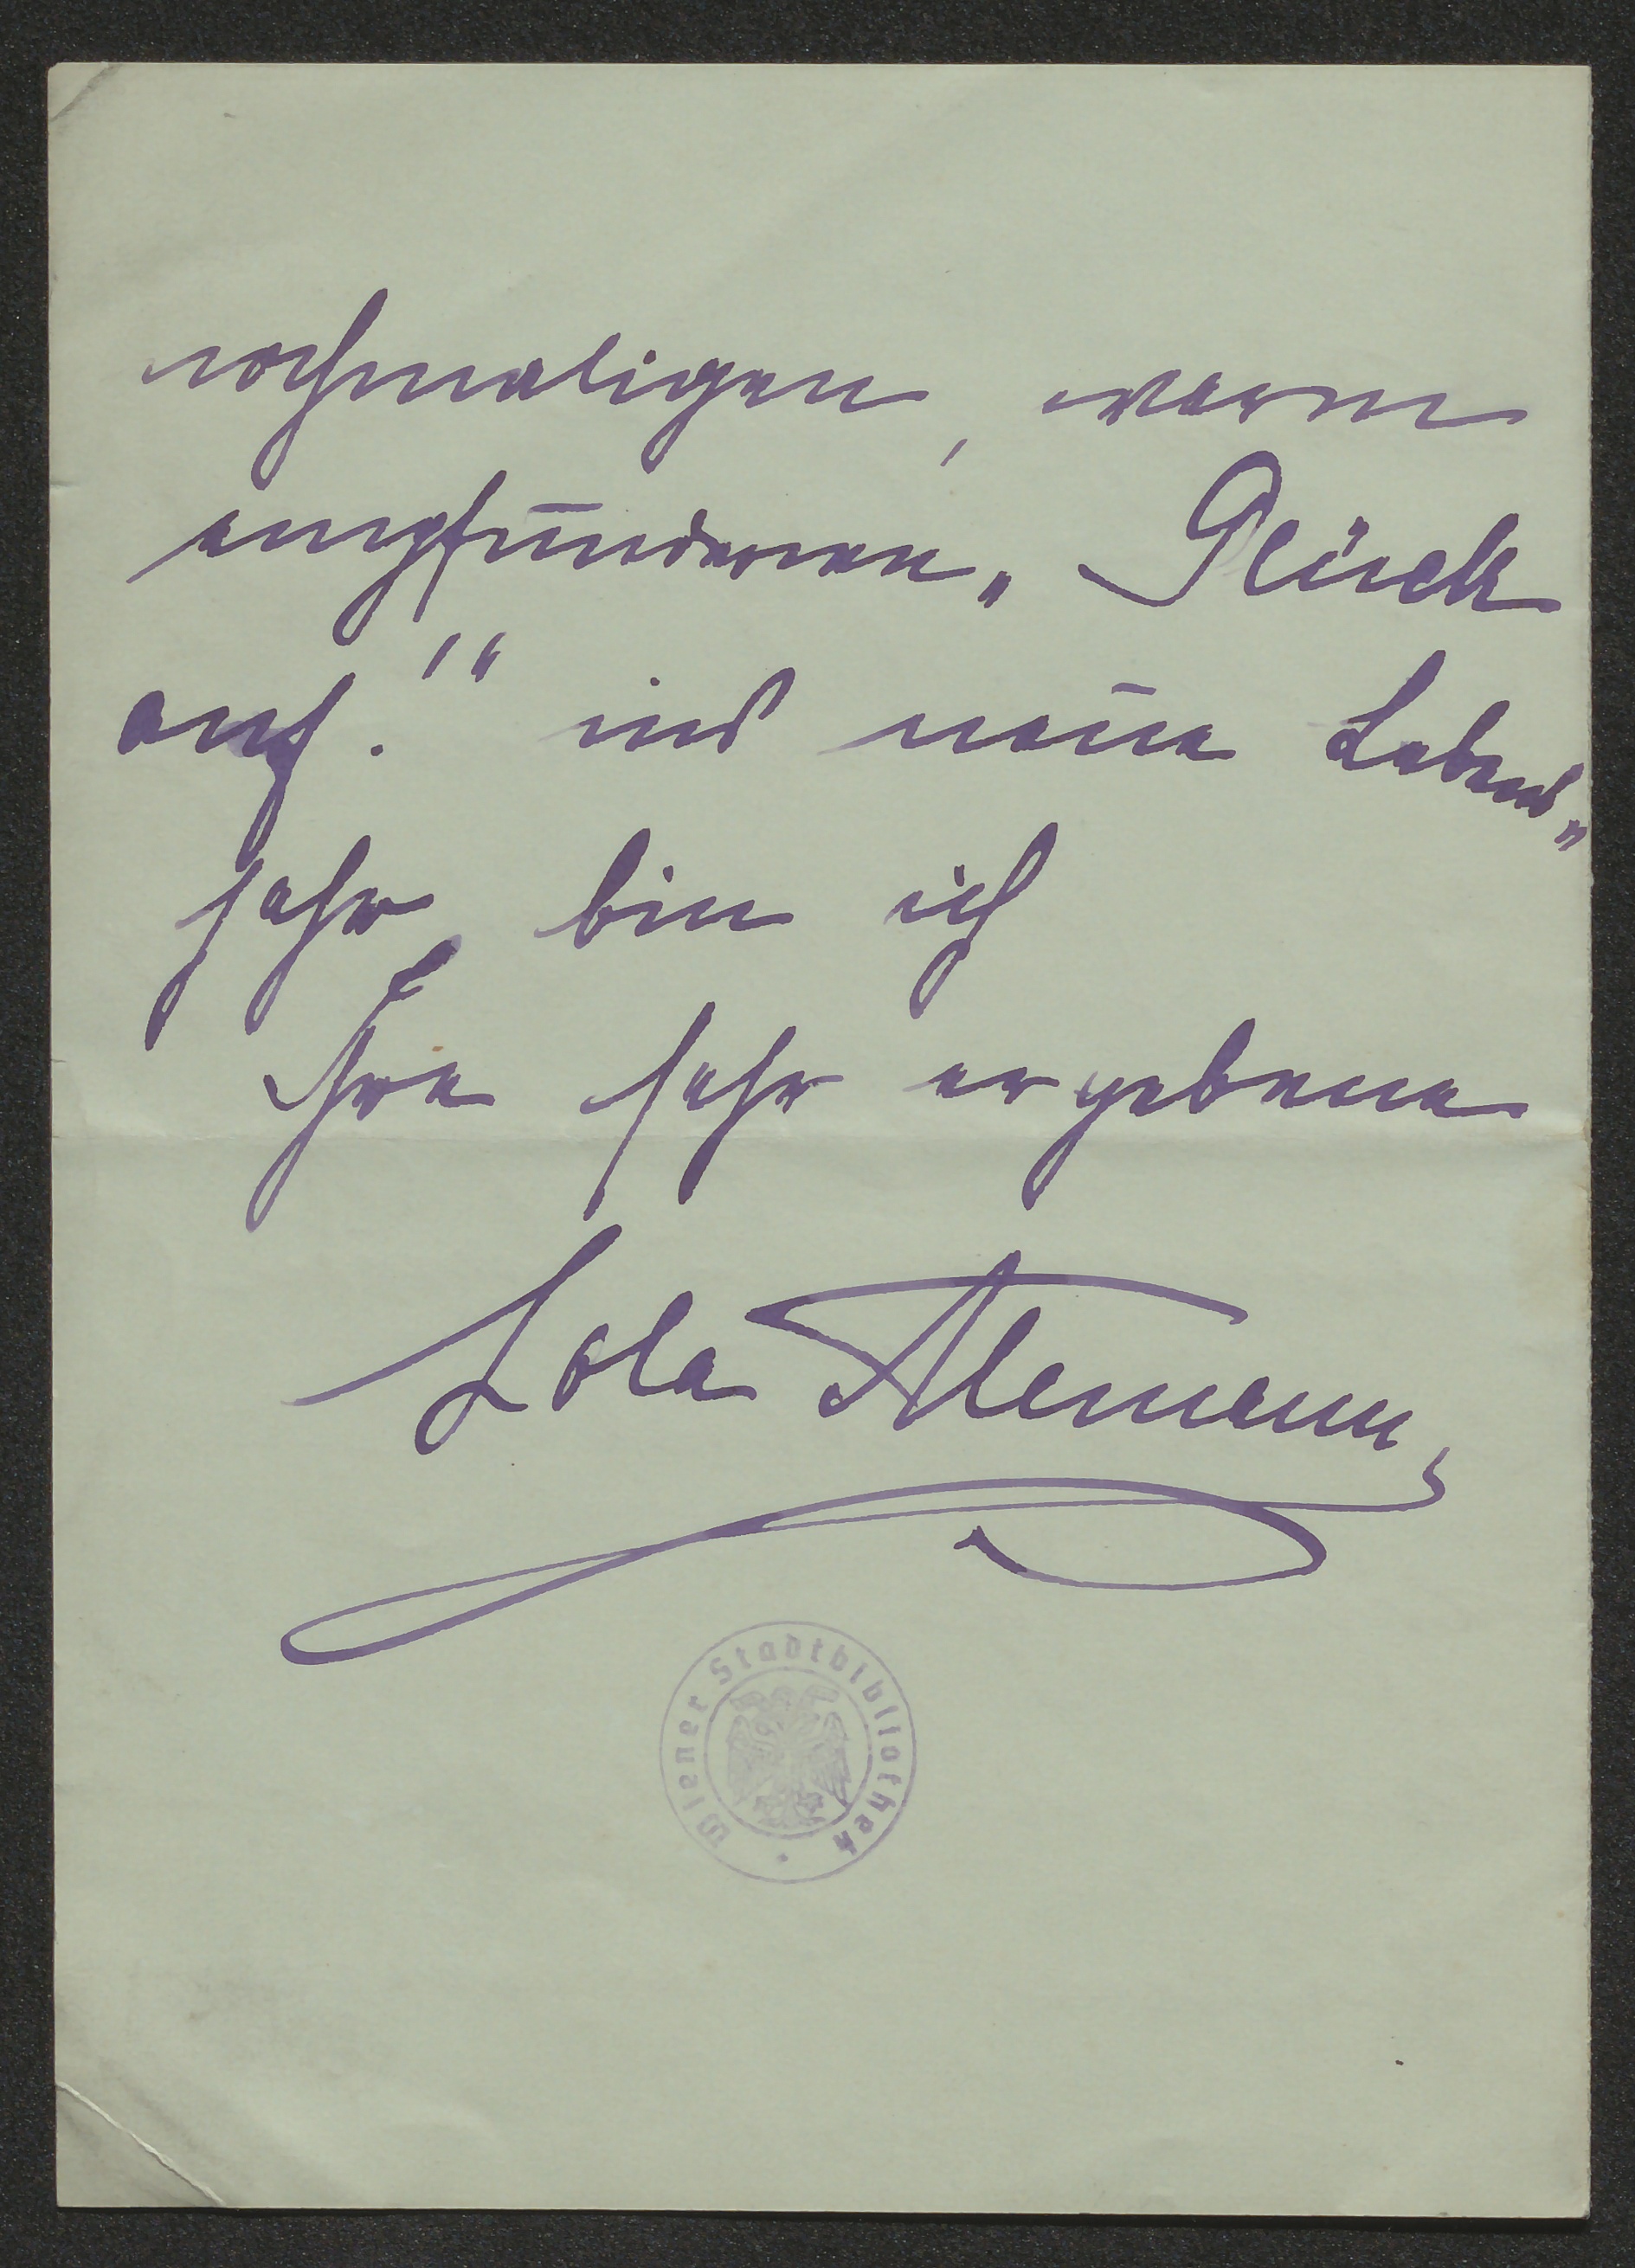 nochmaligen, warm
empfundenen „Glück
auf!“ ins neue Lebens„
jahr, bin ich
Ihre sehr ergebene
Lola Alemann
Wiener Stadtbibliothek